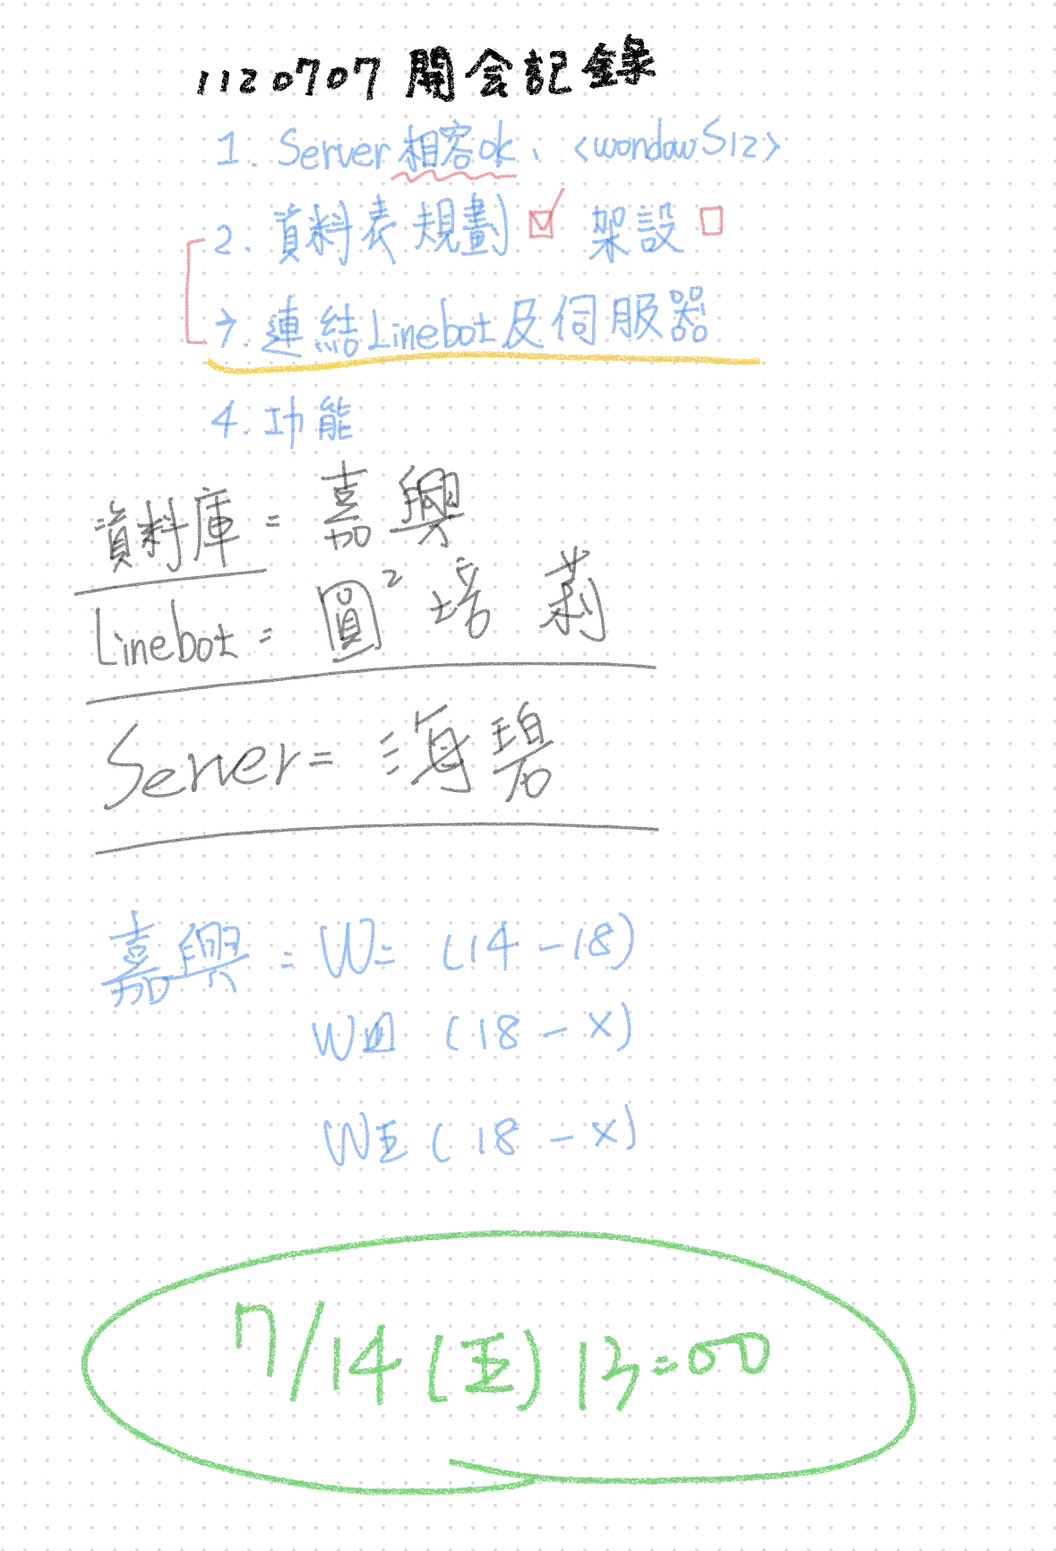 1120707 開会記錄
1. Server 相容ok、<wondowS12>
2. 資料表規劃 ☑ 架設 □
7. 連結Linebot及伺服器
4. 功能
資料庫 = 嘉興
Linebot = 圓² 培 莉
Server = 海碧
嘉興 = W二 (14-18)
W四 (18-X)
W五 (18-X)
7/14 (五) 13:00